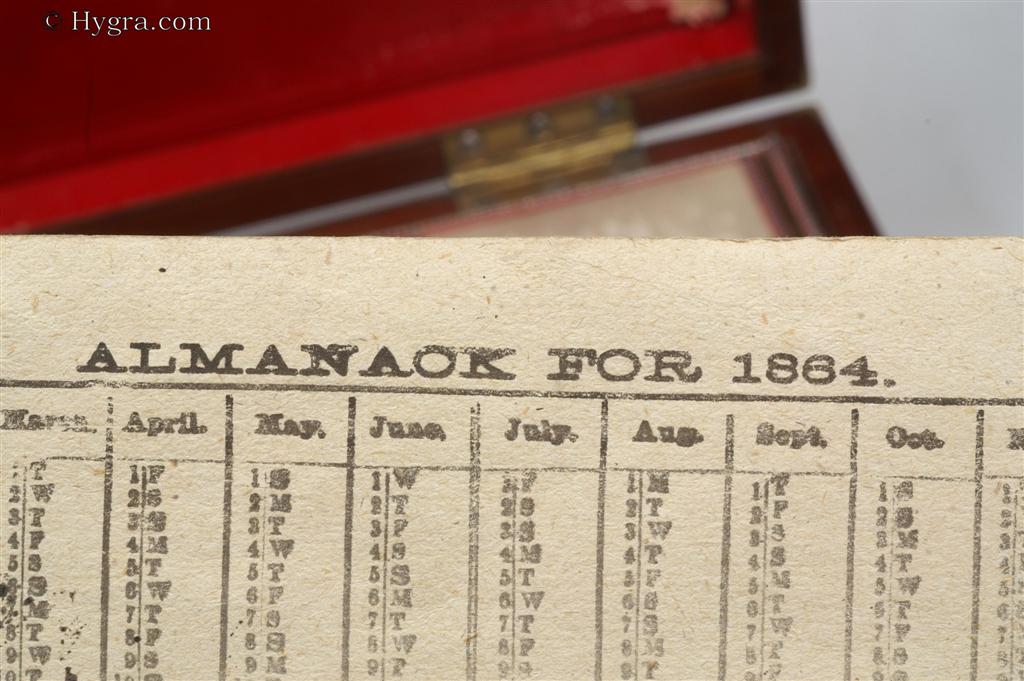 © Hygra.com
ALMANACK FOR 1864.
March. April. May. June. July. Aug. Sept. Oct. N
1 T 1 F 1 S 1 W 1 F 1 M 1 T 1 S
2 W 2 S 2 M 2 T 2 S 2 T 2 F 2 S
3 T 3 S 3 T 3 F 3 S 3 W 3 S 3 M
4 F 4 M 4 W 4 S 4 M 4 T 4 S 4 T
5 S 5 T 5 T 5 S 5 T 5 F 5 M 5 W
6 S 6 W 6 F 6 M 6 W 6 S 6 T 6 T
7 M 7 T 7 S 7 T 7 T 7 S 7 W 7 F
8 T 8 F 8 S 8 W 8 F 8 M 8 T 8 S
9 W 9 S 9 M 9 F 9 S 9 T 9 F 9 S